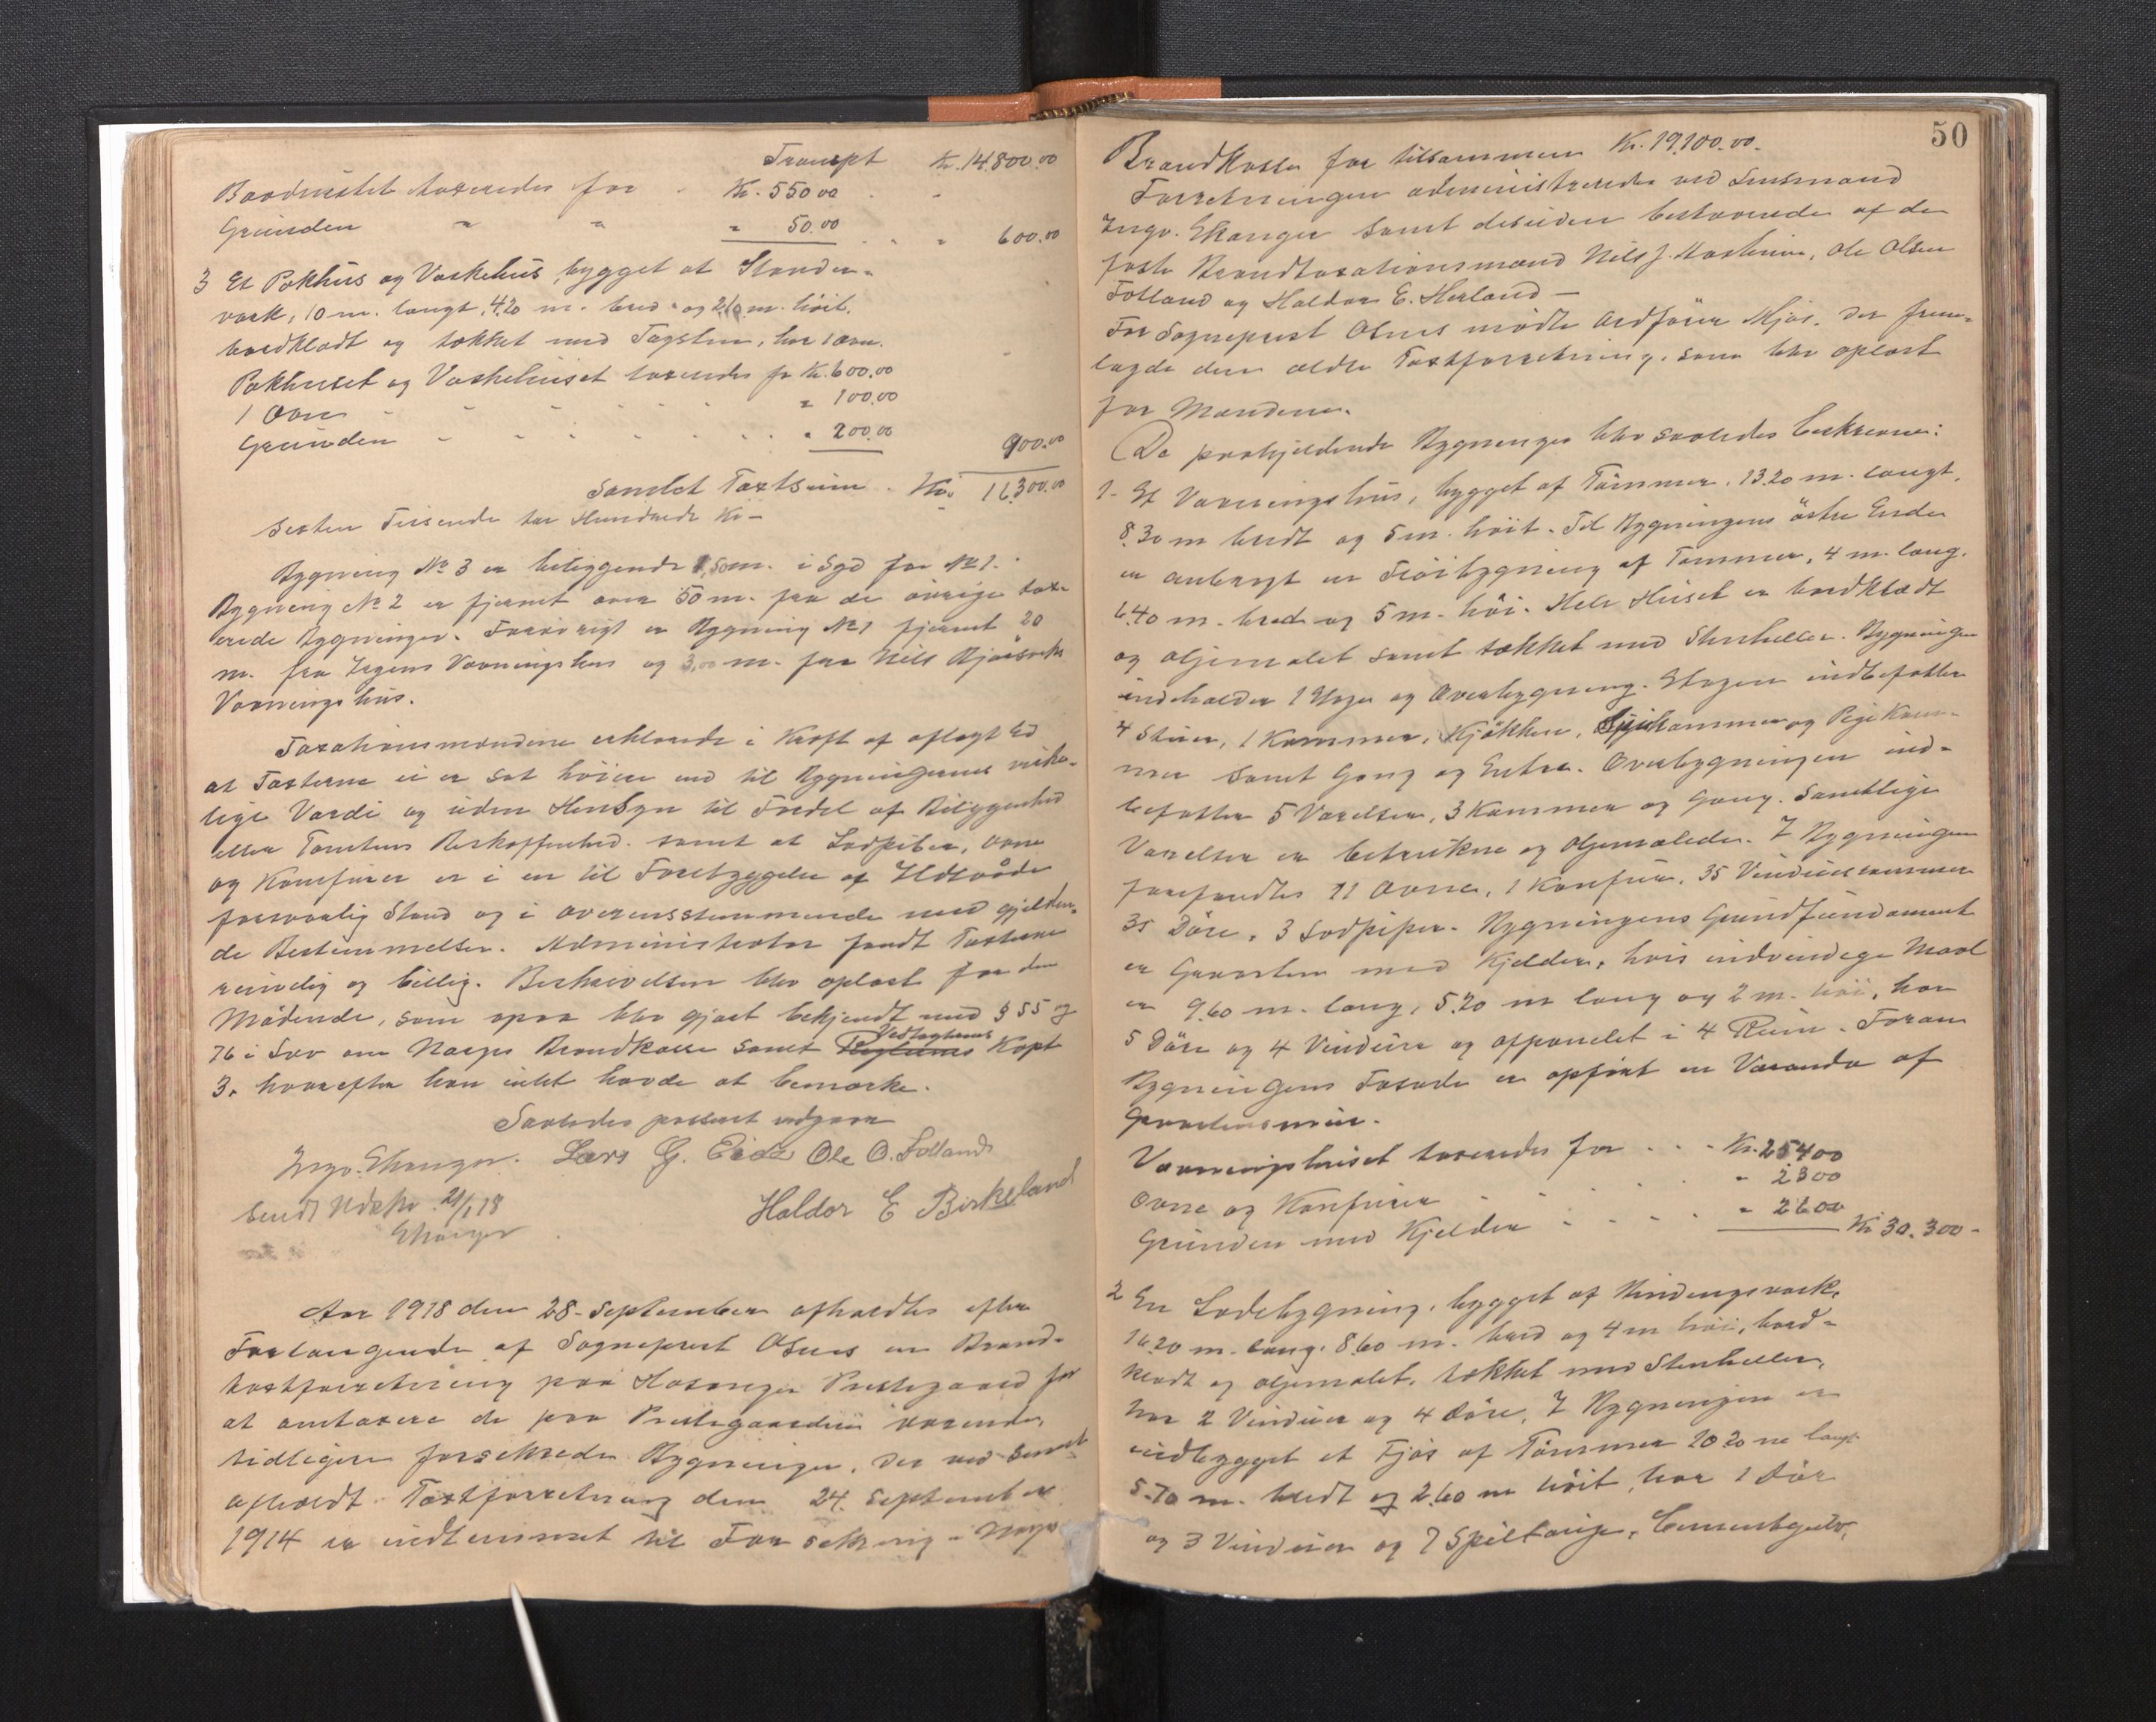 Transpt Kr. 14.800.00
Baadnøstet taxeredes for - Kr. 550.00
Grunden " " " 50.00 " 600.00
3 Et Pakhus og Vaskehus, bygget at Stander-
værk, 10 m. langt, 4.20 m. bred og 2.10 m. höit.
bordklædt og tækket med Tagsten, har 1 Ovn.
Pakhuset og Vaskehuset taxeredes for Kr. 600.00
1 Ovn " 100.00
Grunden " 200.00 900.00
Samlet Taxtsum. Kr. 16300.00
Sexten Tusende tre Hundrede Kr -
Bygning No 3 er beliggende 1,50 m. i Syd for No 1.
Bygning No 2 er fjernet over 50 m. fra de övrige tax-
erede Bygninger. Forövrigt er Bygning No 1 fjernet 20
m. fra Vaaningshus og 3,00 m. fra Nils
Vaaningshus.
Taxationsmændene erklærede i Kraft af aflagt Ed
at Taxterne ei er sat höiere end til Bygningernes virke-
lige Værdi og uden Hensyn til Fordel af Beliggenhed
eller Tomtens Beskaffenhed. samt at Lodpiber, Ovne
og Komfurer er i en til Forebyggelse af Ildsvaade
forsvarlig Stand og i Overensstemmende med gjelden-
de Bestemmelser. Administrator fandt Taxterne
rimelig og billig. Beskrivelsen blev oplæst for den
Mödende, som ogsaa blev gjort bekjendt med § 55 og
76 i Lov om Norges Brandkasse samt Vedtægternes Kapt
3. hvorefter han intet havde at bemærke.
Saaledes passeret vidgaaes
Ingv. Ekanger. Lars G. Eide Ole O. Solland
Haldor E Birkeland
Sendt 21/1 18
Ekanger
Aar 1918 den 28 - September afholdtes efter
Forlangende af Sogneprest Olsnes en Brand-
taxtforretning paa Hosanger Prestegaard for
at omtaxere de paa Prestegaarden værende,
tidligere forsikrede Bygninger. Der ved
afholdt Taxtforretning den 24. September
1914 er indlemmet til Forsikring i Norges
50
Brandkasse for tilsammen Kr. 19.100.00.
Forretningen administreredes ved Lensmand
Ingv. Ekanger samt desuden bestaaende af de
faste Brandtaxationsmænd Nils J., Ole Olsen
Totland og Haldor E. Herland -
For Sogneprest Olsnes mödte Ordförer Mjös. Der frem-
lagde den ældre Taxtforretning, som blev oplæst
for Mændene.
De paagjeldende Bygninger blev saaledes beskreven:
1- Et Vaaningshus, bygget af Tömmer. 13.20 m. langt,
8.30 m bredt og 5 m. höit. Til Bygningens östre Ende
er anbragt en Flöibygning af Tömmer, 4 m. lang.
6.40 m. bred og 5 m. höi. Hele Huset er bordklædt
og oljemalet samt tækket med Stenheller. Bygningen
indeholder 1 Etage og Overbygning. Etagen indbefatter
4 Stuer, 1 Kammer, Kjökken, Spiskammer og Pigekam-
mer samt Gang og Entre. Overbygningen ind-
befatter 5 Værelser, 3 Kammer og Gang. Samtlige
Værelser er betrukne og oljemalede. I Bygningen
forefandtes 11 Ovne, 1 Komfur, 35 Vinduesrammer
35 Döre, 3 Lodpiper. Bygningens Grundfundament
er Graasten med Kjelder, hvis indvendige Maal
er 9.60 m. lang, 5.20 m lang og 2 m. höi, har
5 Döre og 4 Vinduer og afpanelet i 4 Rum. Foran
Bygningens Facade er opfört en Veranda af
Graastensmur.
Vaaningshuset taxeredes for Kr. 25400
Ovne og Komfurer " 2300
Grunden med Kjelder " 2600 Kr 30.300 -
2 En Ladebygning, bygget af Bindingsværk.
16.20 m. lang. 8.60 m. bred og 4 m höi, bord-
klædt og oljemalet, tækket med Stenheller,
har 2 Vinduer og 4 Döre, I Bygningen er
indbygget et Fjös af Tömmer 10.20 m langt
5.70 m. bredt og 2.60 m höit, har 1 Dör
og 3 Vinduer og 7 Spiltauge, Cementgulv,